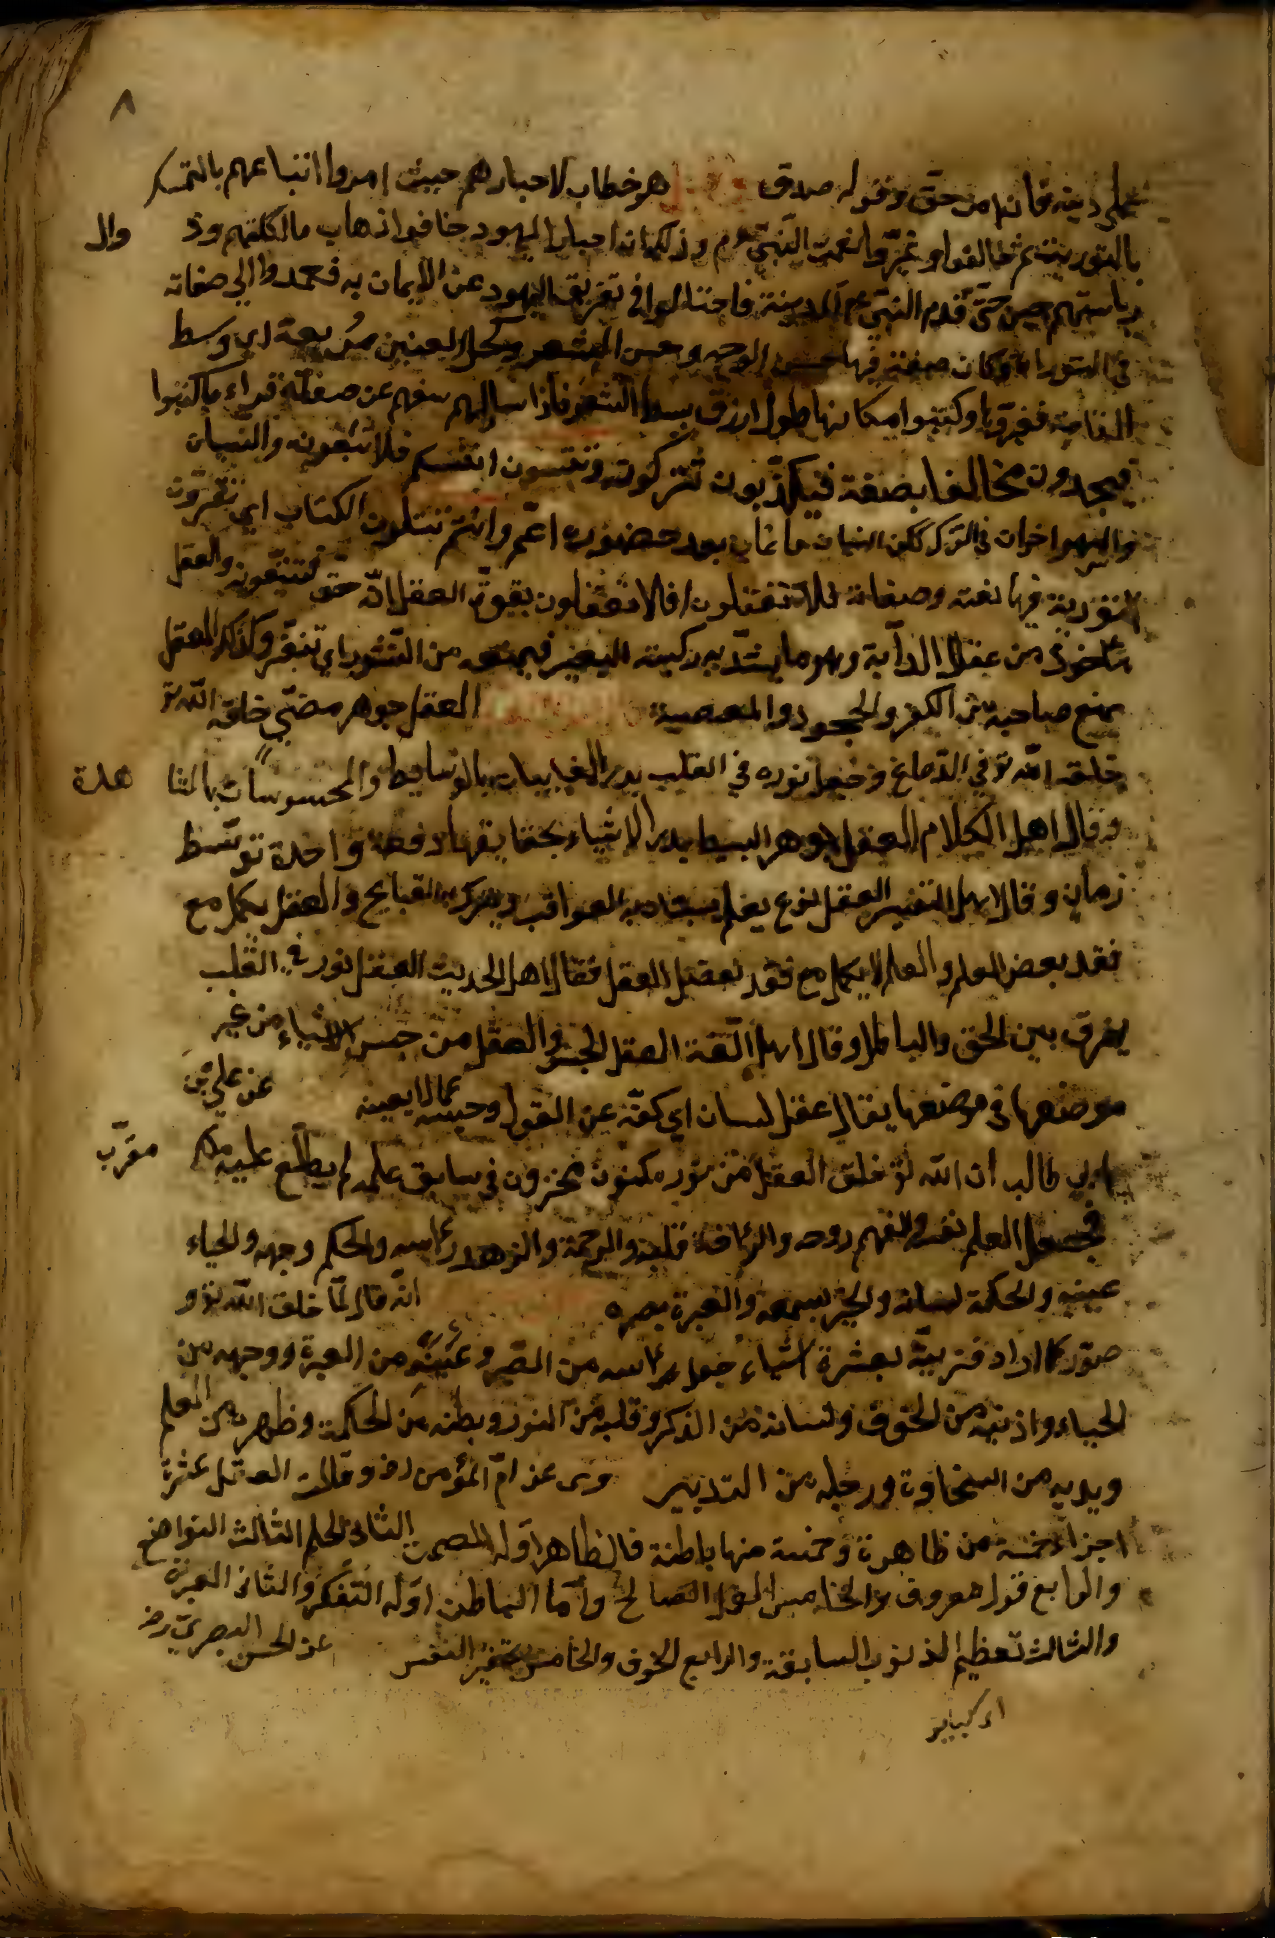 ٨
على دينه فانه من حق وقوله صدق هو خطاب لاحبارهم حيث امروا اتباعهم بالتمسك
بالتورية ثم خالفوا وغيروا نعت النبي عم وذلك ان احبار اليهود خافوا ذهاب مالكلتهم وز وال
رياستهم حين حتى قدم النبي عم المدينة فاحتالوا في تعريف اليهود عن الايمان به فعمدوا الى صفاته
في التوراة وكان صفته فيها حسن الوجه وحسن الشعر وكحل العينين مربعة اي وسط
القامة فغيروها وكتبوا مكانها طول ازرق سبط الشعر فاذا سالهم سفهم عن صفاته قراء ما كتبوا
فيجدون مخالفا بصفة فيكذبون تتركون وتنسون انفسكم فلا تتبعونه والنسيان
والسهو اخوان في الترك لكن النسيان ما غاب بعد حضوره اعم وانتم تتلون الكتاب اي تقرؤن
التورية فيها نعته وصفاته افلا تعقلون بقوة العقل انه حق فتتبعونه والعقل
مأخوذ من عقال الدابة وهو ما يشد به ركبة البعير فيمنعه من النشور اي تنفر وكذلك العقل
يمنع صاحبه من الكفر والجحود والمعصية العقل جوهر مضيئ خلقه الله تع
خلقه الله تع في الدماغ وجعل نوره في القلب يدرك الغايبات بالوسايط والمحسوسات بالمشا هدة
وقال اهل الكلام العقل جوهر البسيط يدرك الاشياء بحقايقها دفعة واحدة توسط
زمان وقال اهل التفسير العقل نوع يعلم به العواقب ويدرك به القبايح والعقل يكمل مع
فقد بعض العلم والعلم لا يكمل مع فقد بعض العقل فقال اهل الحديث العقل نور في القلب
يفرق بين الحق والباطل وقال اهل اللغة العقل الحبس والعقل من حبس الاشياء من غير
موضعها في موضعها يقال عقل لسان اي كفه عن القول وحبسه عما لا يعنيه عن علي بن
ابي طالب ان الله تع خلق العقل من نور مكنون مخزون في سابق علمه لم يطلع عليه ملك مقرب
فجعل العلم نفسه والفهم روحه والرأفة قلبه والرحمة والزهد رأسه والحكم وجهه والحياء
عينيه والحكمة لسانه والخير سمعه والعبرة بصره انه قال لما خلق الله تع و
صوره كما اراد فتربيته بعشرة اشياء جعل رأسه من الصبر وعينيه من العبرة ووجهه من
الحياء واذنيه من الخوف ولسانه من الذكر وقلبه من النور وبطنه من الحكمة وظهره من العلم
ويديه من السخاوة ورجليه من التدبير وى عن ام المؤمن رض وقالت العقل عشرة
اجزاء خمسة من ظاهرة وخمسة منها باطنة فالظاهر اوله الصمت الثاني الحلم الثالث التواضع
والرابع قول معروف والخامس العمل الصالح وأما الباطن اوله التفكر والثاني العبرة
والثالث تعظيم الذنوب السابقة والرابع الخوف والخامس تحقير النفس عن الحسن البصري رض